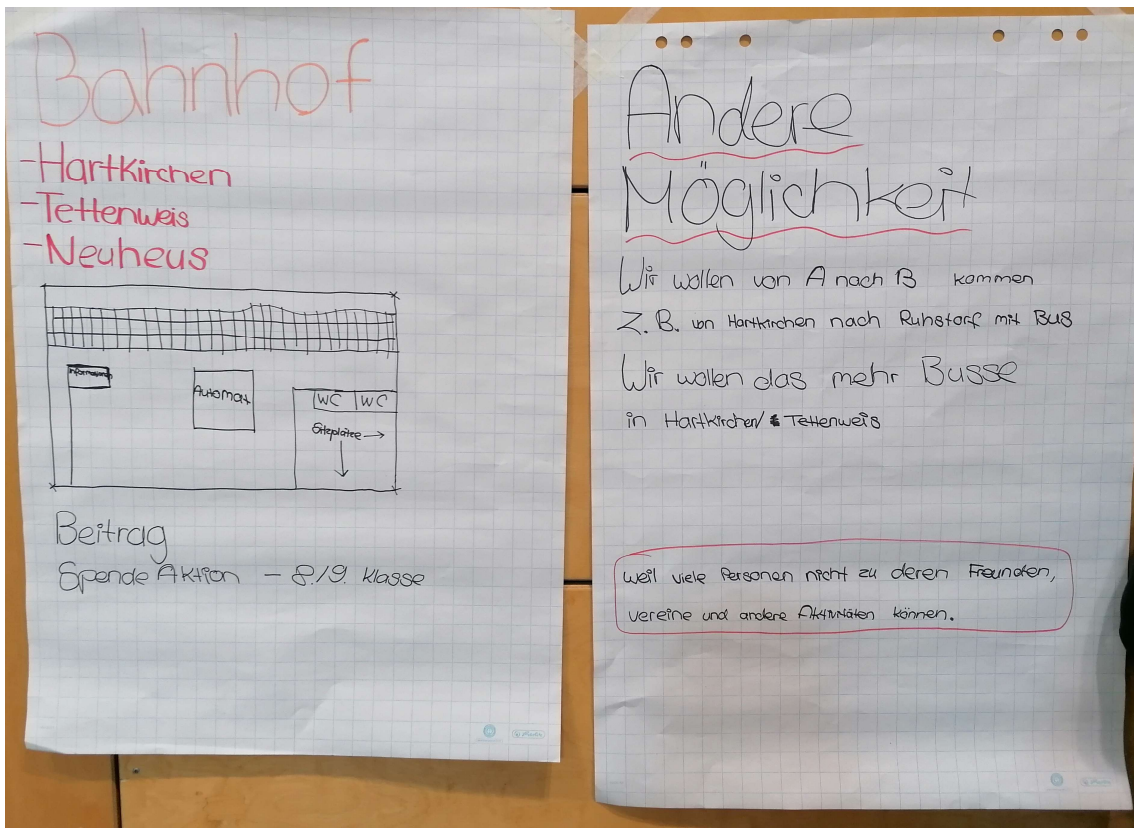 Bahnhof
-Hartkirchen
-Tettenweis
-Neuheus
Information
Automat
WC WC
Sitzplätze →
Beitrag
Spende Aktion - 8./9. klasse
Andere
Möglichkeit
Wir wollen von A nach B kommen
Z.B. von Hartkirchen nach Ruhstorf mit Bus
Wir wollen das mehr Busse
in Hartkirchen/ Tettenweis
weil viele Personen nicht zu deren Freunden,
vereine und andere Aktivitäten können.